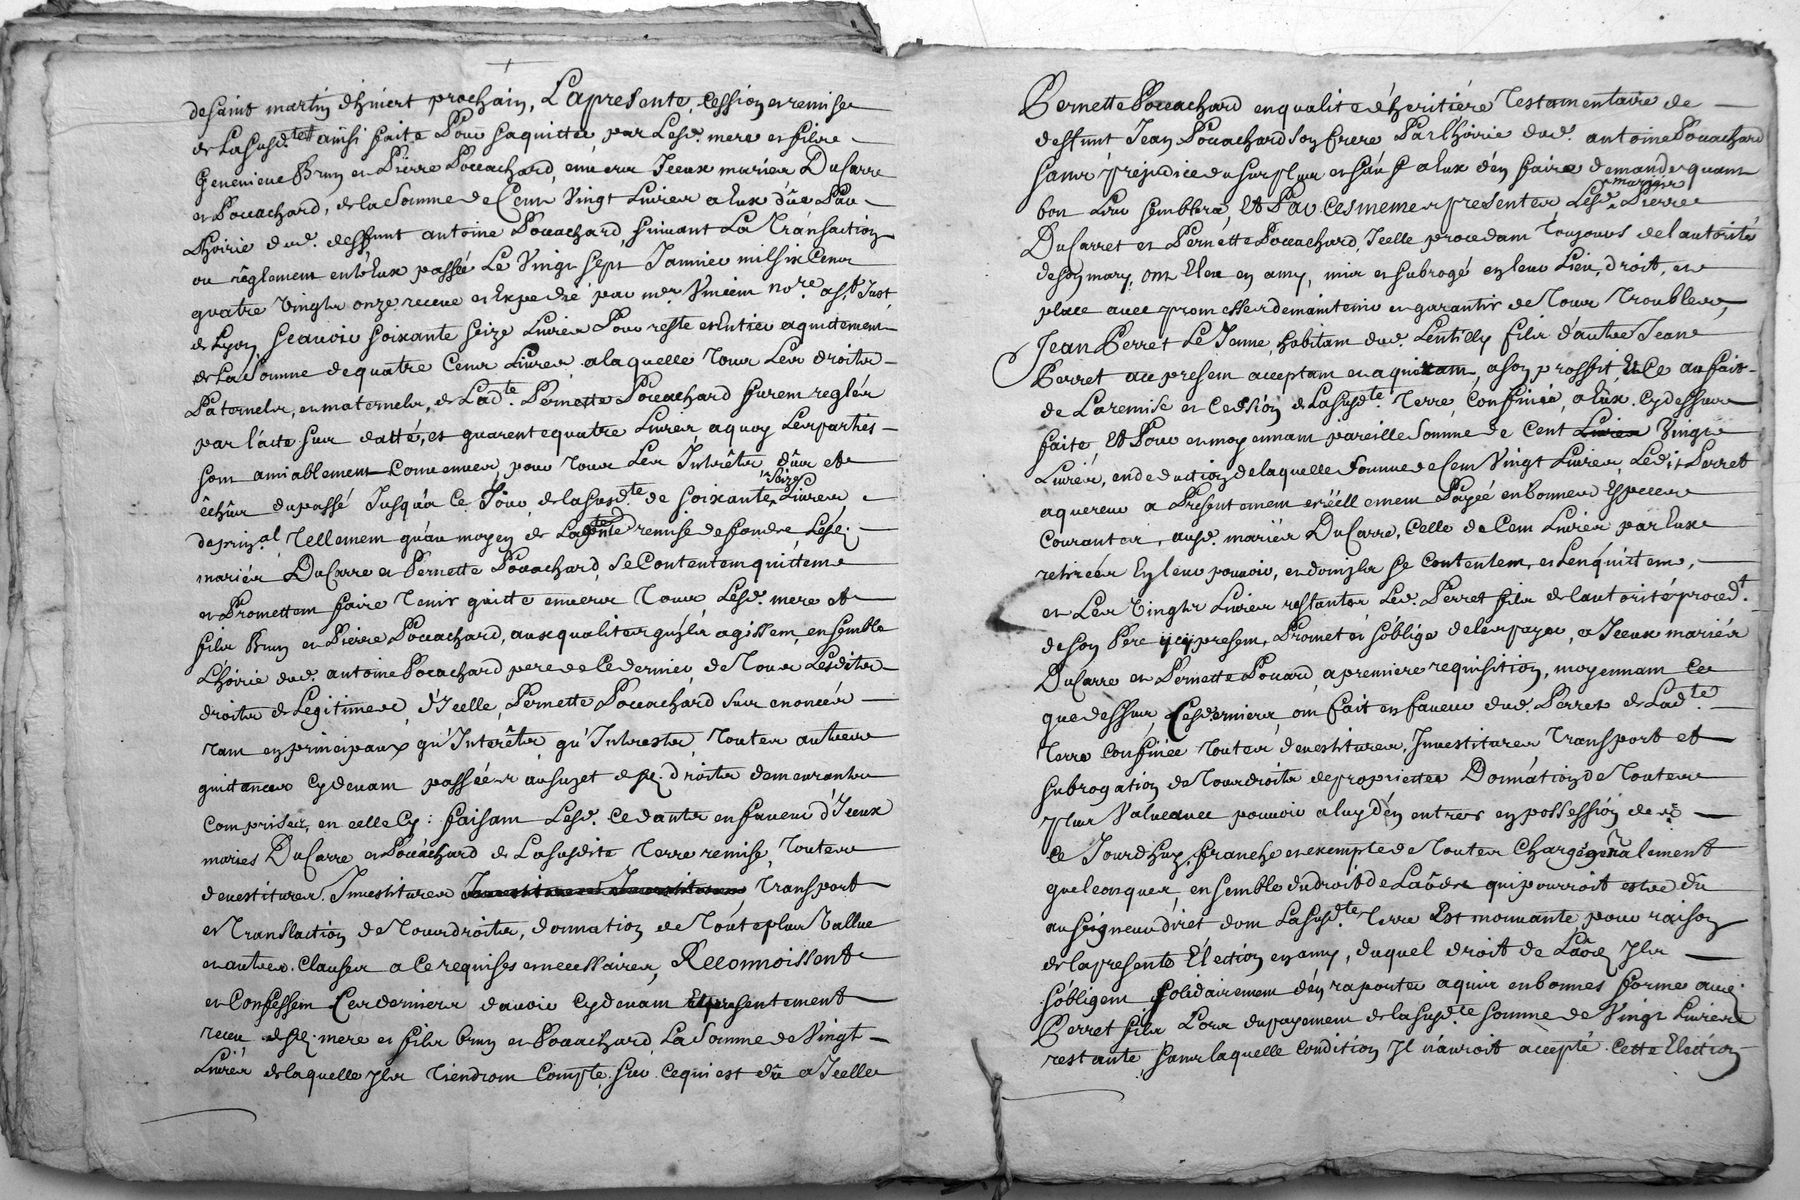 de saint martin d'hivert prochain, La presente, Cession et remise
de La susd.te ainsi faite Pour saquitter par Lesd. mere et filz
Genevieve Brun et Pierre Pouachard, envers Iceux mariez DuCarre
et Pouachard, de la Somme de Cent Vingt Livres a Eux düe Par
L'hoirie dud. deffunt antoine Pouachard, suivant La Tránsaction
ou réglement entr'Eux passée Le Vingt sept Janvier mil six Cens
quatre Vingts onze receue et Expedié par me. Vincent no.re a S.t Just
de Lyon, scavoir soixante seize Livres Pour reste et Entier aquitement
de La Somme de quatre Cens Livres, a laquelle Tous Les droits
Paternels, et maternels, de Lad.te Pernette Pouachard furent reglés
par l'acte sus datté, et quarente quatre Livres a quoy Les parties
sont amiablement Convenues, pour Tous Les Intrêtz, dûs et
êchûs du passé Jusqu'a Ce Jour, de la susd.te de soixante seize Livres
de prin.al Tellement qu'au moyen de La p.nte remise de fonds, Lesd.
mariés DuCarre et Pernette Pouachard, se Contentent quittent
et Promettent faire Tenir quitte envers Tous, Lesd. mere et
filz Brun et Pierre Pouachard, aux qualites qu'ilz agissent, ensemble
L'hoirie dud. antoine Pouachard pere de Ce dernier, de Tous Lesdits
droits de Legitimes, d'Icelle, Pernette Pouachard sus enoncés
Tant en principaux qu'Interêtz qu'Intrestz, Toutes autres
quitances Cy devant passées au sujet desd. droits demeurants
Comprises, en celle Cy: faisant Lesd. Cedants en faveur d'Iceux
maries DuCarre et Pouachard de La susdite Terre remise, Toutes
devestitures. Investitures Transport
et Translaction de Tous droits, donnation de Toute plus Vallue
et autres. Clauses a Ce requises et necessaires, Reconnoissent
et Confessent Ces derniers d'avoir Cy devant Et presentement
receu desd. mere et filz brun et Pouachard La Somme de Vingt
Livres de laquelle Ilz Tiendront Compte sur. Ce qui est dû a Icelle
Pernette Pouachard en qualite d'heritiere Testamentaire de
deffunt Jean Pouachard son frere Par L'hoirie dud. antoine Pouachard
sans préjudice du surplus et saúf a Eux d'en faire demande quant
bon Leur semblera, Et Par Ces mêmes presentes Lesd. mariés Pierre
DuCarret et Pernette Pouachard, Icelle procedant Toujours de l'autorité
de son mary, ont Eleu en amy, mis et subrogé en leur Lieu, droit, et
place avec promesses de maintenir et garantir de Tous Troubles,
Jean Perret Le Jeune, habitant dud. Lentilly fils d'autre Jean
Perret au present acceptant et aquérant, a son proffit Et Ce au fait
de La remise et Cession de La susd.te Terre, Confinée, a Eux. Cy dessus
faite, Et Pour et moyennant pareille Somme de Cent Vingt
Livres, en deduction de laquelle Somme de Cent Vingt Livres, Ledit Perret
aquereur a Présentement et réellement Payée en bonnes Especes
Courantes, ausd. mariés DuCarre, Celle de Cent Livres par Eux
retirées en leur pouvoir, et dont ilz se Contentent, et Len quittent,
et Les Vingts Livres restantes Led. Perret filz de l'autorité proced.t
de son Pere icy present, Promet et s'oblige de les payer, a Iceux mariés
DuCarre et Pernette Pouard, a premiere requisition, moyennant Ce
que dessus, Ces derniers, ont fait en faveur dud. Perret de Lad.te
Terre Confinée Toutes devestitures, Investitures Transport et
subrogation de Tous droits de proprietté Donnátion de Toutes
plus Value avec pouvoir a luy d'en entrer en possession dez
Ce Jourd'huy, franche et exempte de Toutes Charges generalement
quelconques, ensemble du droit de Laôds qui pourroit estre dû
au seigneur diret dont La susd.te Terre Est mouvante, pour raison
de la presente Election en amy, duquel droit de Laôd Ilz
s'obligent solidairement d'en raporter aquit en bonnes forme aud.
Perret filz Lors du payement de la susd.te somme de Vingt Livres
restante, sans laquelle Condition Il n'auroit accepté Cette Election